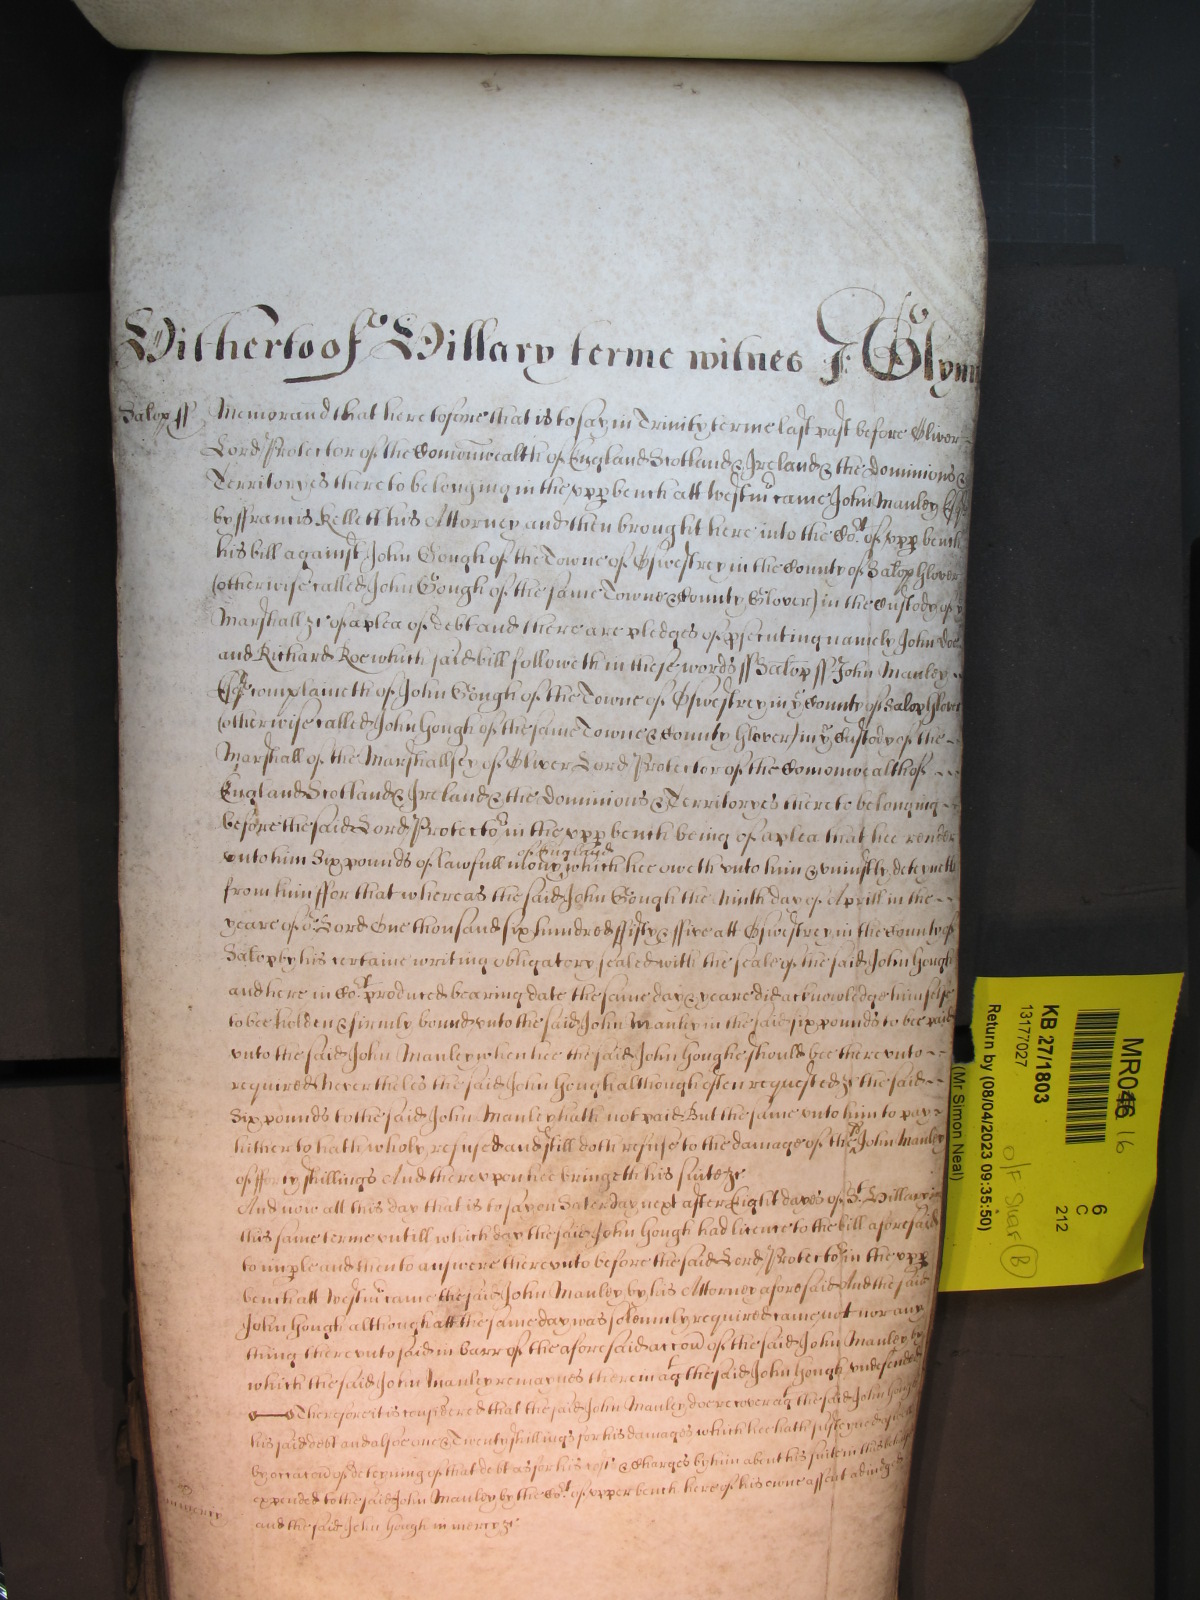 Hitherto of Hillary terme witnes J: Glynn
Salop ss Memorand that heretofore that is to say in Trinity terme last past before Oliver
Lord Protector of the Comonwealth of England Scotland & Ireland & the Dominions &
Territoryes thereto belonging in the upp bench att Westm came John Manley Esq
by ffrancis Kellett his Attorney and then brought here into the Cot of upp bench
his bill against John Gough of the Towne of Oswestrey in the County of Salop Glover
(otherwise called John Gough of the same Towne & County Glover) in the Custody of ye
Marshall &c of a plea of debt and there are pledges of psecuting namely John Doe
and Richard Roe which said bill followeth in these words ss Salop ss John Manley
Esqr complaineth of John Gough of the Towne of Oswestrey in ye County of Salop Glover
(otherwise called John Gough of the same Towne & County Glover) in ye Custody of the
Marshall of the Marshallsey of Oliver Lord Protector of the Comonwealth of
England Scotland & Ireland & the Dominions & Territoryes thereto belonging
before the said Lord Protector in the upp bench being of a plea that hee render
unto him Six pounds of lawfull mony of England which hee oweth unto him & uniustly deteyneth
from him ffor that whereas the said John Gough the Ninth day of Aprill in the
yeare of or Lord One thousand six hundred ffifty & ffive att Oswestrey in the County of
Salop by his certaine writing obligatory sealed with the seale of the said John Gough
and here in Cot produced bearing date the same day & yeare did acknowledge himselfe
to bee holden & firmly bound unto the said John Manley in the said six pounds to bee paid
unto the said John Manley when hee the said John Gough should bee thereunto
required Nevertheles the said John Gough although often requested &c the said
Six pounds to the said John Manley hath not paid But the same unto him to pay
hitherto hath wholy refused and still doth refuse to the damage of the sd John Manley
of fforty shillings And thereupon hee bringeth his suite &c
And now att this day that is to say on Saterday next after Eight dayes of St Hillary in
this same terme untill which day the said John Gough had licence to the bill aforesaid
to imple and then to answere thereunto before the said Lord Protector in the upp
bench att Westm came the said John Manley by his Attorney aforesaid And the said
John Gough although att the same day was solemnly required came not nor any
thing thereunto said in barr of the aforesaid accon of the said John Manley by
which the said John Manley remaynes therein agt the said John Gough undefended
Therefore it is considered that the said John Manley doe recover agt the said John Gough
his said debt and alsoe one & Twenty shillings for his damages which hee hath susteyned aswell
by occacon of deteyning of that debt as for his cost & Charges by him about his suite in this behalf
expended to the said John Manley by the Cot of upper bench here of his owne assent adiudged
and the said John Gough in mercy &c
In mercy
MR046 16
KB 27/1803
13177027
Return by (08/04/2023 09:35:50)
(Mr Simon Neal)
6
C
212
O/F Shelf B